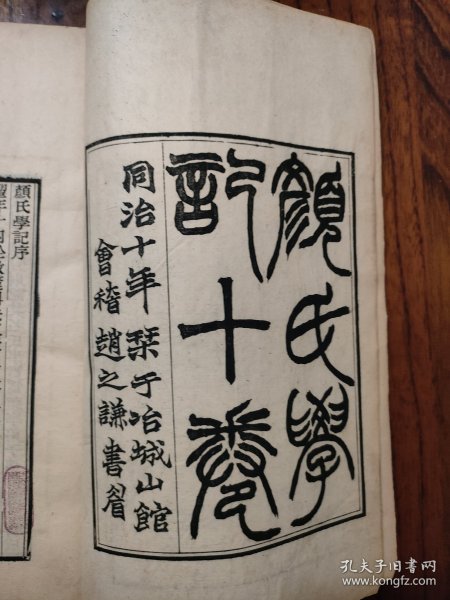 顏氏學
記十卷
同治十年栞于冶城山館
會稽趙之謙書耑
顏氏學記序
孔夫子旧书网
www.kongfz.com